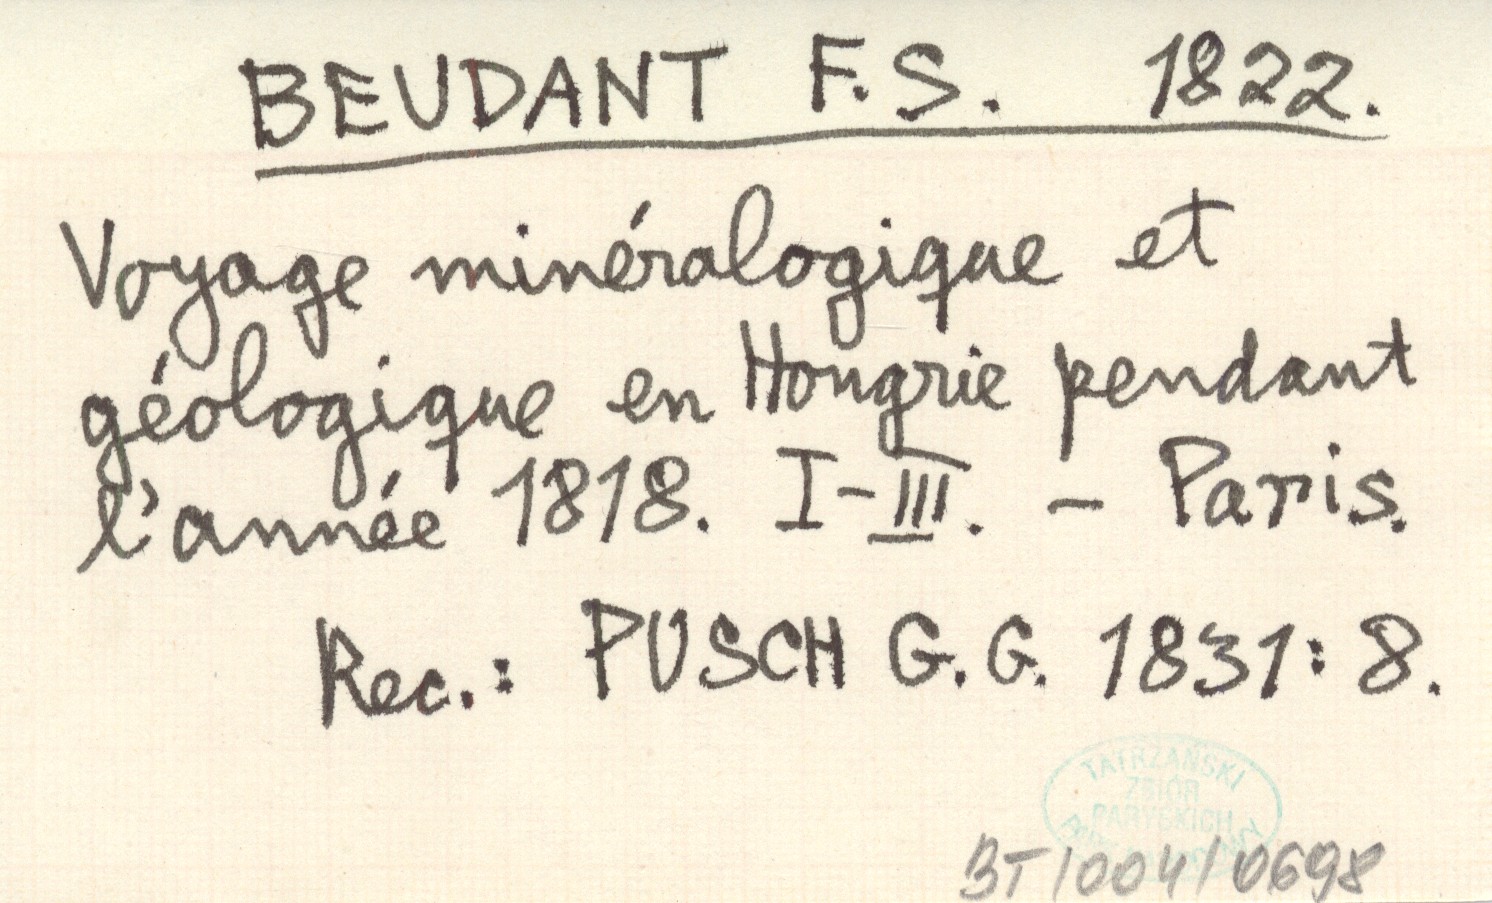 BEUDANT F.S. 1822.
Voyage minéralogique et
géologique en Hongrie pendant
l'année 1818. I-III. - Paris.
Rec.: PUSCH G.G. 1831: 8.
TATRZAŃSKI
ZBIÓR
PARYSKICH
BT/004/0698